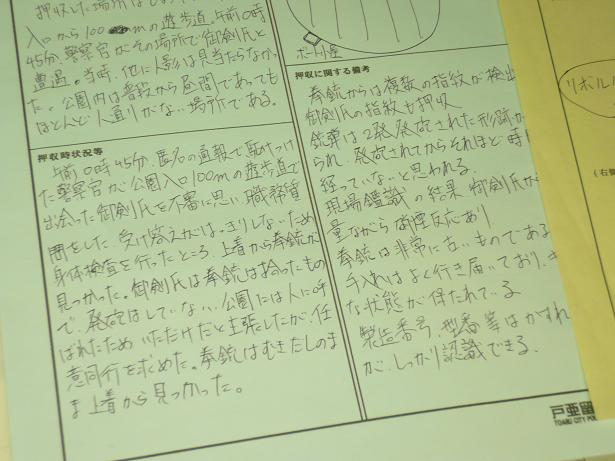 押収した場所は
入口から100mの遊歩道。午前0時
45分、警察官がその場所で御剣氏と
遭遇。当時、他に人影は見当たらなかっ
た。公園内は普段から昼間であっても
ほとんど人通りがない場所である。
押収時状況等
午前0時45分、匿名の通報で駆けつけ
た警察官が公園入口100mの遊歩道で
出会った御剣氏を不審に思い、職務質
問をした。受け答えがはっきりしないため
身体検査を行ったところ、上着から拳銃が
見つかった。御剣氏は拳銃は拾ったもの
で、発砲はしていない、公園には人に呼
ばれたためいただけだと主張したが、任
意同行を求めた。拳銃はむきだしのま
ま上着から見つかった。
ボート小屋
押収に関する備考
拳銃からは複数の指紋が検出
御剣氏の指紋も押収
銃弾は2発発砲された形跡が
られ、発砲されてからそれほど時
経っていないと思われる。
現場鑑識の結果、御剣氏か
量ながら硝煙反応あり
拳銃は非常に古いものである
手入れはよく行き届いており、き
な状態が保たれている
製造番号、型番等はかすれ
が、しっかり認識できる。
リボル
(右側
戸亜留
TOARU CITY POL